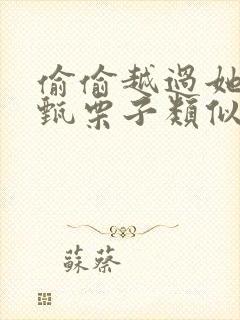 偷偷越過她
甄栗子類似
蘇蔡